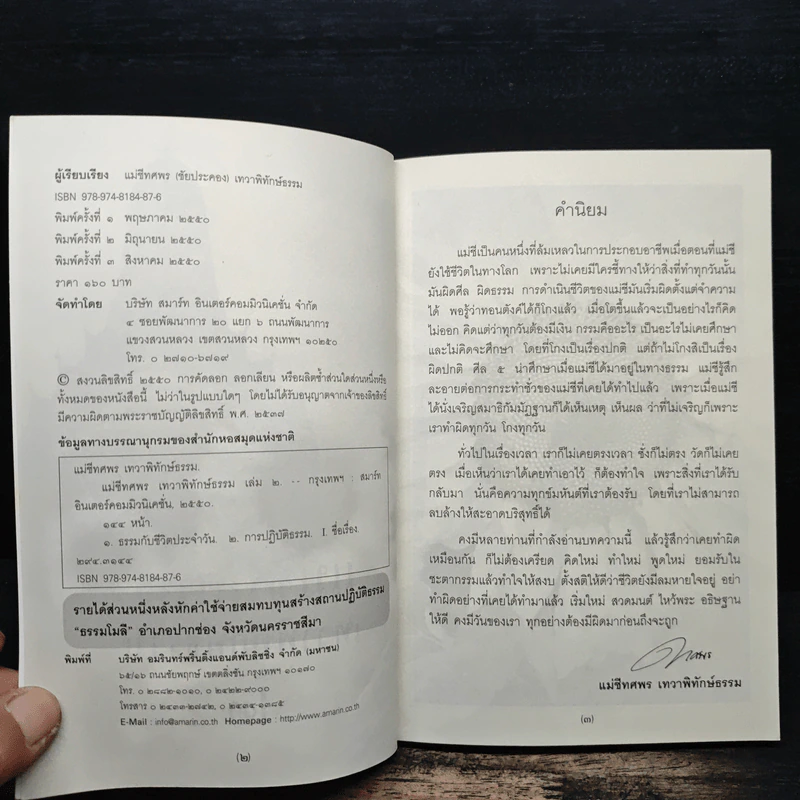 ผู้เรียบเรียง แม่ชีทศพร (ชัยประคอง) เทวาพิทักษ์ธรรม
ISBN 978-974-8184-87-6
พิมพ์ครั้งที่ ๑ พฤษภาคม ๒๕๕๐
พิมพ์ครั้งที่ ๒ มิถุนายน ๒๕๕๐
พิมพ์ครั้งที่ ๓ สิงหาคม ๒๕๕๐
ราคา ๑๖๐ บาท
จัดทำโดย บริษัท สมาร์ท อินเตอร์คอมมิวนิเคชั่น จำกัด
๔ ซอยพัฒนาการ ๒๐ แยก ๖ ถนนพัฒนาการ
แขวงสวนหลวง เขตสวนหลวง กรุงเทพฯ ๑๐๒๕๐
โทร. ๐ ๒๗๑๐-๖๗๑๙
© สงวนลิขสิทธิ์ ๒๕๕๐ การคัดลอก ลอกเลียน หรือผลิตซ้ำส่วนใดส่วนหนึ่งหรือ
ทั้งหมดของหนังสือนี้ ไม่ว่าในรูปแบบใดๆ โดยไม่ได้รับอนุญาตจากเจ้าของลิขสิทธิ์
มีความผิดตามพระราชบัญญัติลิขสิทธิ์ พ.ศ. ๒๕๓๗
ข้อมูลทางบรรณานุกรมของสำนักหอสมุดแห่งชาติ
แม่ชีทศพร เทวาพิทักษ์ธรรม.
แม่ชีทศพร เทวาพิทักษ์ธรรม เล่ม ๒. -- กรุงเทพฯ : สมาร์ท
อินเตอร์คอมมิวนิเคชั่น, ๒๕๕๐.
๑๔๔ หน้า.
๑. ธรรมกับชีวิตประจำวัน. ๒. การปฏิบัติธรรม. I ชื่อเรื่อง.
๒๙๔.๓๑๔๔
ISBN 978-974-8184-87-6
รายได้ส่วนหนึ่งหลังหักค่าใช้จ่ายสมทบทุนสร้างสถานปฏิบัติธรรม
"ธรรมโมลี" อำเภอปากช่อง จังหวัดนครราชสีมา
พิมพ์ที่ บริษัท อมรินทร์พริ้นติ้งแอนด์พับลิชชิ่ง จำกัด (มหาชน)
๖๕/๑๖ ถนนชัยพฤกษ์ เขตตลิ่งชัน กรุงเทพฯ ๑๐๑๗๐
โทร. ๐ ๒๘๘๒-๑๐๑๐, ๐ ๒๔๒๒-๙๐๐๐
โทรสาร ๐ ๒๔๓๓-๒๗๔๒, ๐ ๒๔๓๔-๑๓๘๕
E-Mail : info@amarin.co.th Homepage : http://www.amarin.co.th
(๒)
คำนิยม
แม่ชีเป็นคนหนึ่งที่ล้มเหลวในการประกอบอาชีพเมื่อตอนที่แม่ชี
ยังใช้ชีวิตในทางโลก เพราะไม่เคยมีใครชี้ทางให้ว่าสิ่งที่ทำทุกวันนั้น
มันผิดศีล ผิดธรรม การดำเนินชีวิตของแม่ชีมันเริ่มผิดตั้งแต่จำความ
ได้ พอรู้ว่าทอนตังค์ได้ก็โกงแล้ว เมื่อโตขึ้นแล้วจะเป็นอย่างไรก็คิด
ไม่ออก คิดแต่ว่าทุกวันต้องมีเงิน กรรมคืออะไร เป็นอะไรไม่เคยศึกษา
และไม่คิดจะศึกษา โดยที่โกงเป็นเรื่องปกติ แต่ถ้าไม่โกงสิเป็นเรื่อง
ผิดปกติ ศีล ๕ น่าศึกษาเมื่อแม่ชีได้มาอยู่ในทางธรรม แม่ชีรู้สึก
ละอายต่อการกระทำชั่วของแม่ชีที่เคยได้ทำไปแล้ว เพราะเมื่อแม่ชี
ได้นั่งเจริญสมาธิกัมมัฏฐานก็ได้เห็นเหตุ เห็นผล ว่าที่ไม่เจริญก็เพราะ
เราทำผิดทุกวัน โกงทุกวัน
ทั่วไปในเรื่องเวลา เราก็ไม่เคยตรงเวลา ชั่งก็ไม่ตรง วัดก็ไม่เคย
ตรง เมื่อเห็นว่าเราได้เคยทำเอาไว้ ก็ต้องทำใจ เพราะสิ่งที่เราได้รับ
กลับมา นั่นคือความทุกข์มหันต์ที่เราต้องรับ โดยที่เราไม่สามารถ
ลบล้างให้สะอาดบริสุทธิ์ได้
คงมีหลายท่านที่กำลังอ่านบทความนี้ แล้วรู้สึกว่าเคยทำผิด
เหมือนกัน ก็ไม่ต้องเครียด คิดใหม่ ทำใหม่ พูดใหม่ ยอมรับใน
ชะตากรรมแล้วทำใจให้สงบ ตั้งสติให้ดีว่าชีวิตยังมีลมหายใจอยู่ อย่า
ทำผิดอย่างที่เคยได้ทำมาแล้ว เริ่มใหม่ สวดมนต์ ไหว้พระ อธิษฐาน
ให้ดี คงมีวันของเรา ทุกอย่างต้องมีผิดมาก่อนถึงจะถูก
แม่ชีทศพร เทวาพิทักษ์ธรรม
(๓)